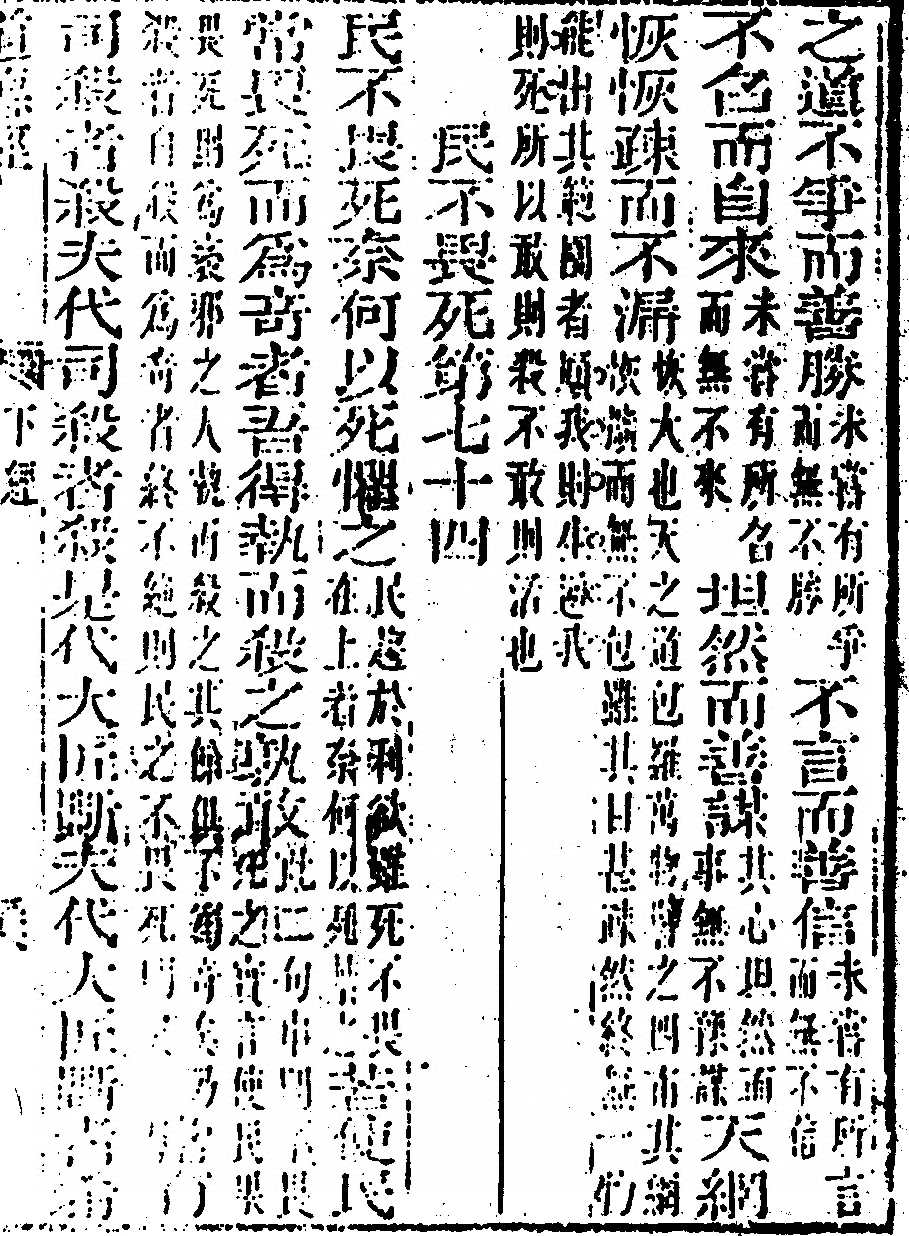 之道不爭而善勝未嘗有所爭而無不勝不言而善信未嘗有所言而無不信
不召而自來未嘗有所召而無不來坦然而善謀其心坦然而事無不豫謀天網
恢恢疎而不漏恢大也天之道包羅萬物譬之四布其網恢而無不包雖其目甚疎然終無一物
能出其範圍者順我則生逆我則死所以敢則殺不敢則活也
民不畏死第七十四
民不畏死奈何以死懼之民趨於利欲雖死不畏在上者奈何以死懼之若使民
常畏死而為奇者吾得執而殺之孰敢此二句申明畏死之實言使民果
畏死則為邪之人而殺之其餘俱不奇矣乃殺者自殺而為奇者終不絕則民之不畏死明矣
司殺者殺夫代司殺者殺是代大匠斲夫代大匠斲者希
道德經 下經